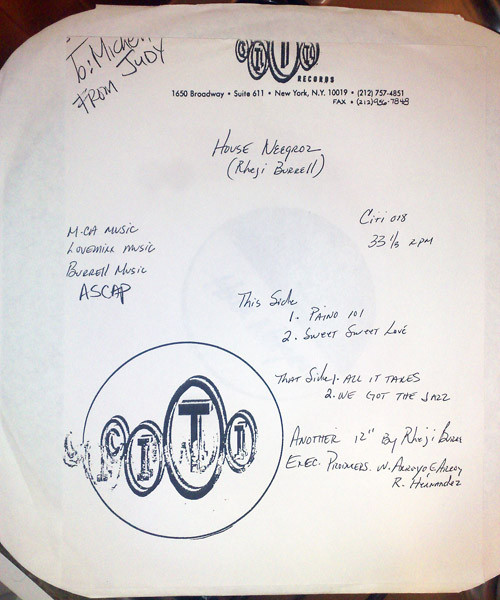 To: Michell
FROM JUDY
CITI
RECORDS
1650 Broadway • Suite 611 • New York, N.Y. 10019 • (212) 757-4851
FAX • (212) 956-7848
HOUSE NEEGROZ
(Rheji Burrell)
Citi 018
33 1/3 RPM
M-CA MUSIC
LOVEMIXX MUSIC
BURRELL MUSIC
ASCAP
This Side
1. PAINO 101
2. SWEET SWEET LOVE
THAT SIDE 1. ALL IT TAKES
2. WE GOT THE JAZZ
CITI
ANOTHER 12" By Rheji Burre
EXEC. PRODUCERS. W. ARROYO E ARROY
R. Hernandez